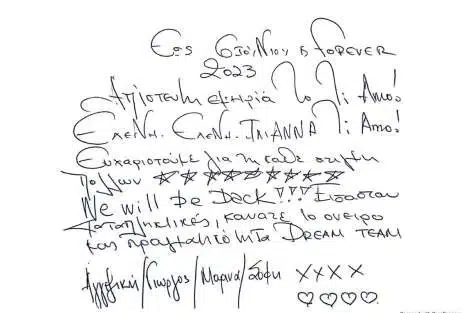 Εως αιώνιου & FOREVER
2023
Απίστευτη εμπειρία Το Ti Amo!
Ελενη. Ελενη. ΙΛΙΑΝΝΑ Ti Amo!
Ευχαριστούμε για τη καθε στιγμη
Πολλων ☆☆☆☆☆☆☆☆☆
We will be Back!!! Εισασταν
καταπληκτικές, κανατε το ονειρο
μας πραγματικότητα DREAM TEAM
Αγγελική/Γιωργος/Μαρνα/Σοφη XXXX
♡♡♡♡